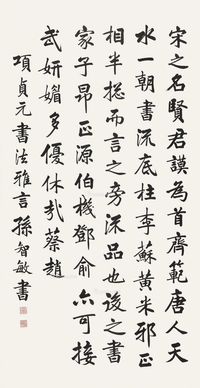 宋之名賢君謨為首齊範唐人天
水一朝書流底柱李蘇黃米邪正
相半總而言之旁流品也後之書
家子昂正源伯機鄧俞亦可接
武妍媚多優休哉蔡趙
項貞元書法雅言孫智敏書